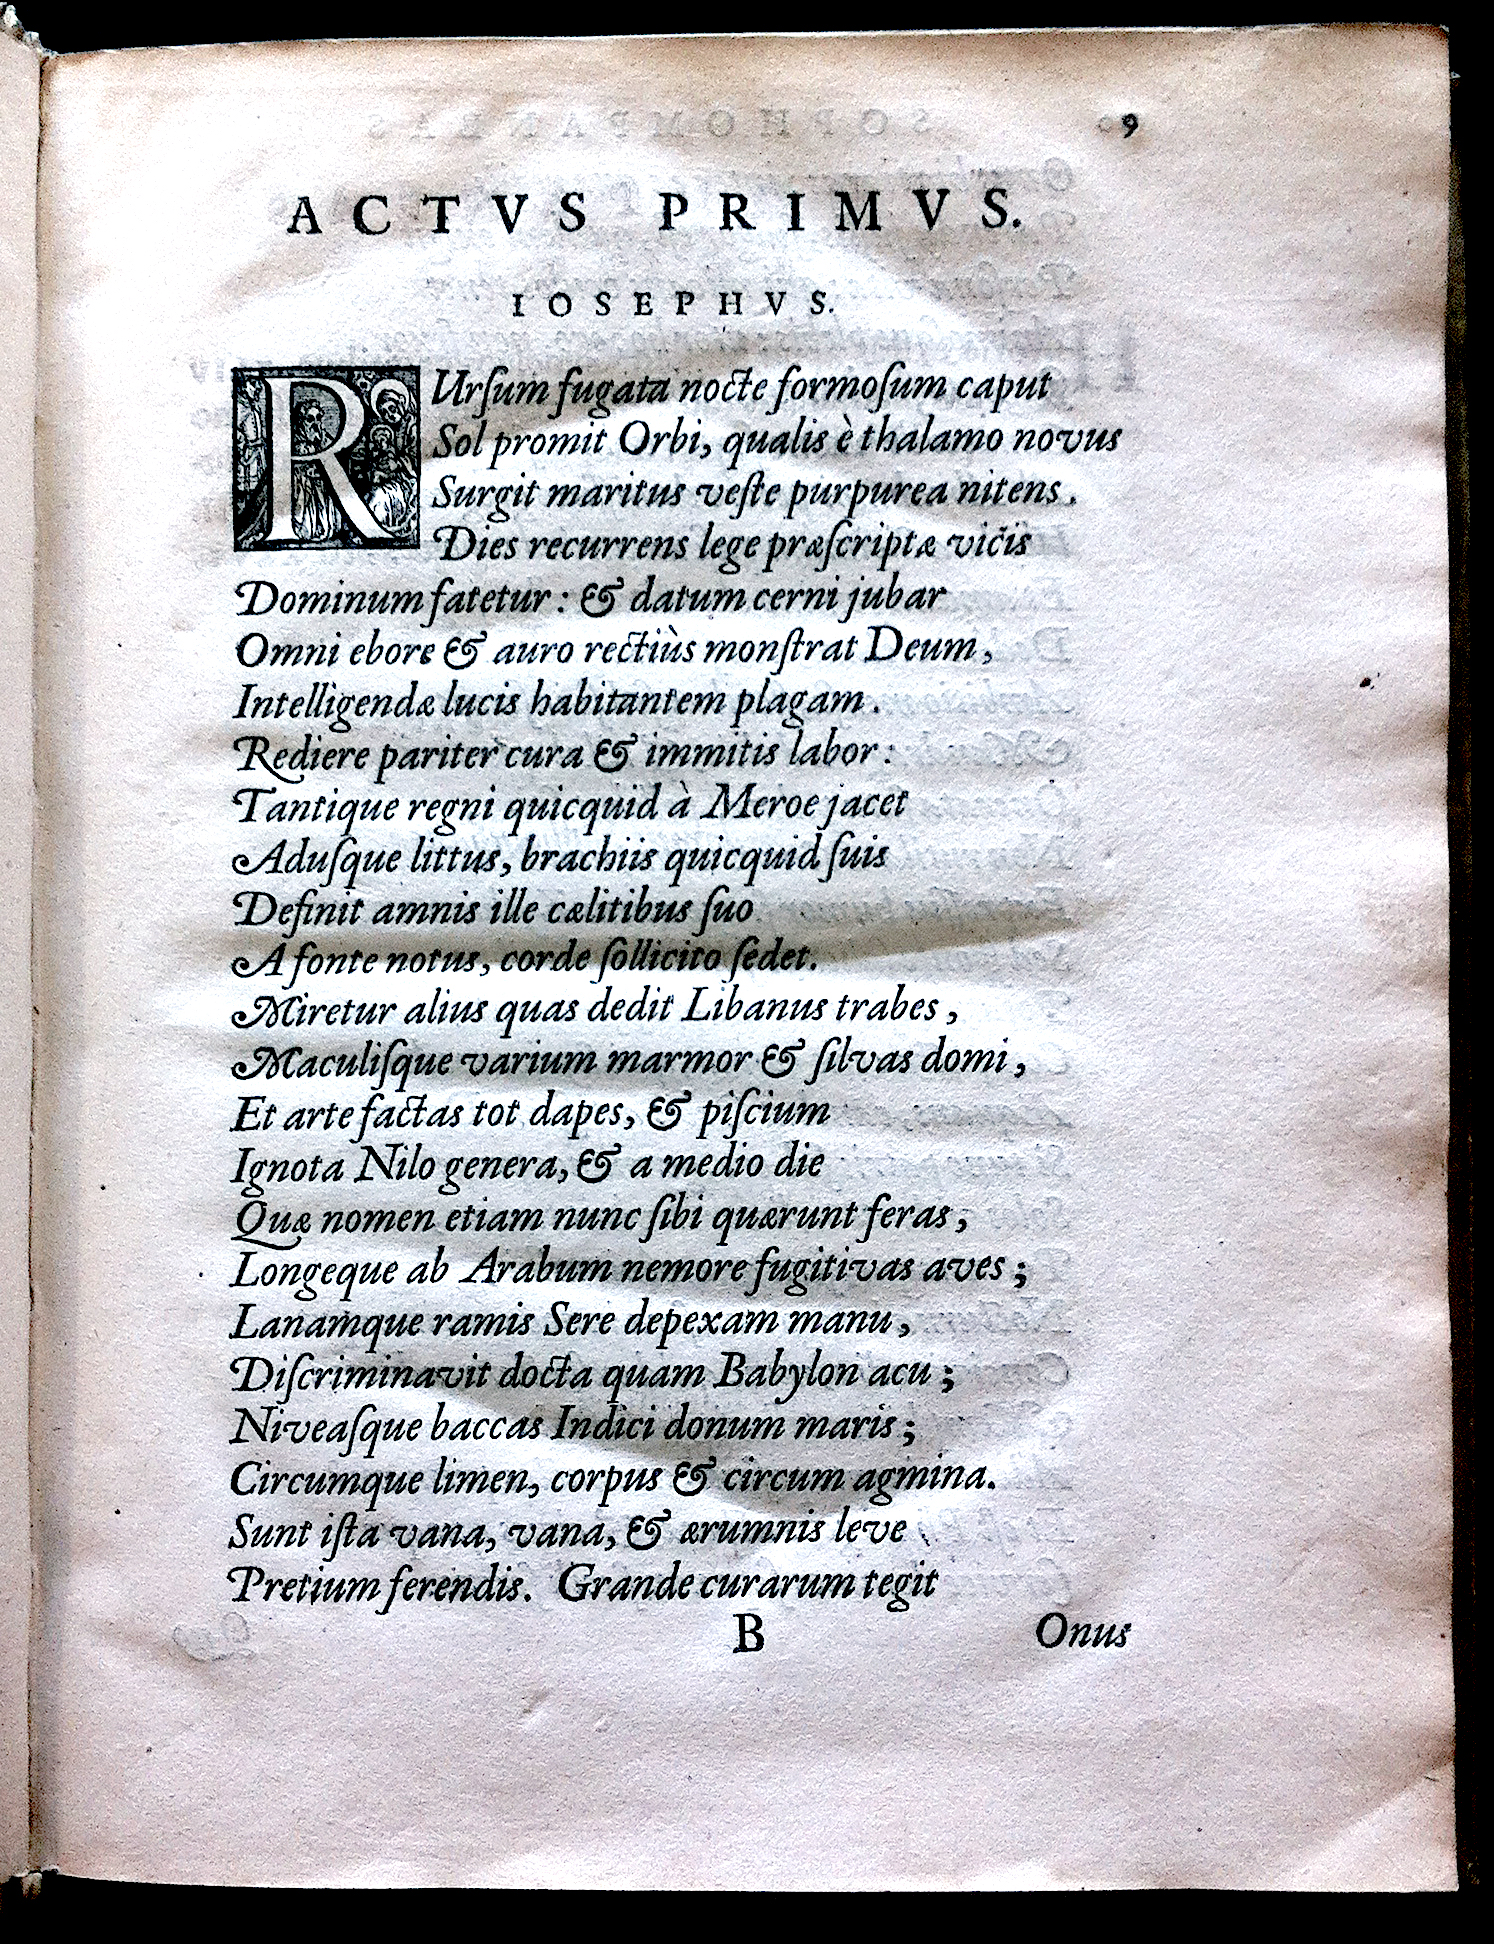 9
ACTVS PRIMVS.
IOSEPHVS.
RUrſum fugata nocte formoſum caput
Sol promit Orbi, qualis è thalamo novus
Surgit maritus veſte purpurea nitens.
Dies recurrens lege præſcriptæ vicis
Dominum fatetur: & datum cerni jubar
Omni ebore & auro rectiùs monſtrat Deum,
Intelligendæ lucis habitantem plagam.
Rediere pariter cura & immitis labor:
Tantique regni quicquid à Meroe jacet
Aduſque littus, brachiis quicquid ſuis
Definit amnis ille cælitibus ſuo
A fonte notus, corde ſollicito ſedet.
Miretur alius quas dedit Libanus trabes,
Maculiſque varium marmor & ſilvas domi,
Et arte factas tot dapes, & piſcium
Ignota Nilo genera, & a medio die
Quæ nomen etiam nunc ſibi quærunt feras,
Longeque ab Arabum nemore fugitivas aves;
Lanamque ramis Sere depexam manu,
Diſcriminavit docta quam Babylon acu;
Niveaſque baccas Indici donum maris;
Circumque limen, corpus & circum agmina.
Sunt iſta vana, vana, & ærumnis leve
Pretium ferendis. Grande curarum tegit
B Onus